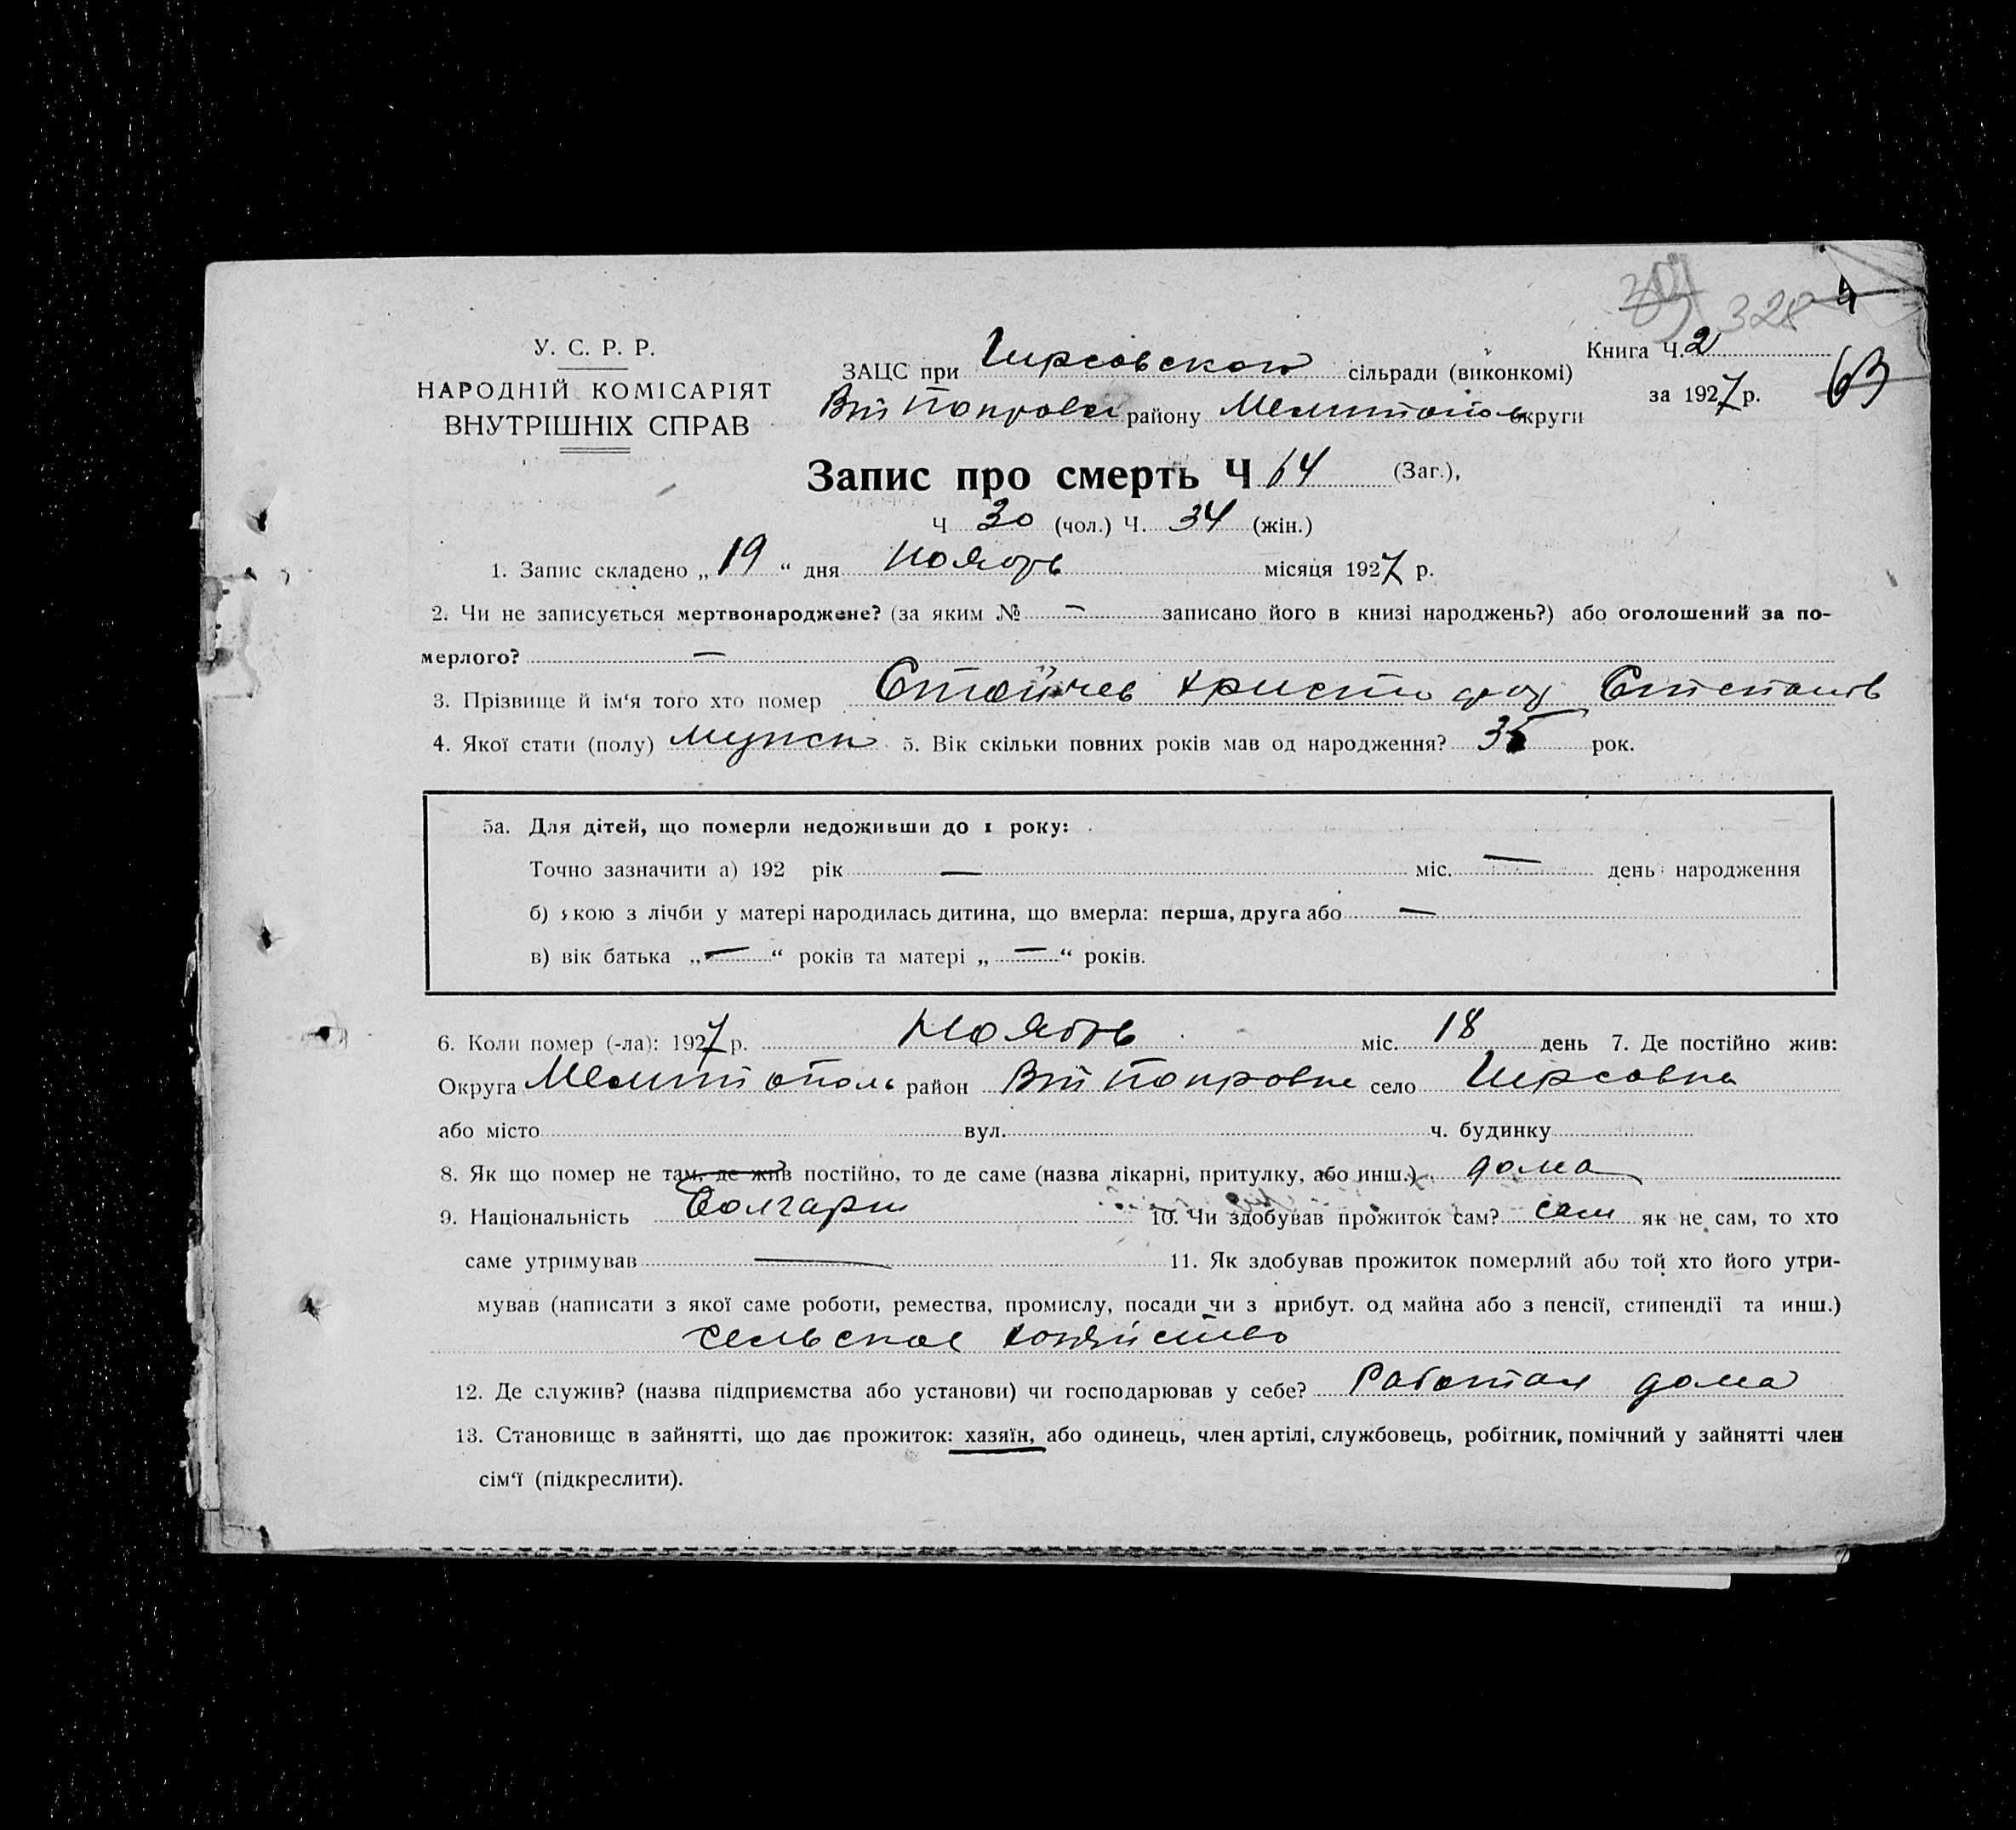 328 4
У. С. Р. Р.
НАРОДНІЙ КОМІСАРІЯТ
ВНУТРІШНІХ СПРАВ
ЗАЦС при Гирсовском сільради (виконкомі)
району Мелитополь округи
Книга Ч. 2
за 1927 р.
63
Запис про смерть Ч 64 (Заг.),
Ч 30 (чол.) Ч. 34 (жін.)
1. Запис складено „ 19 “ дня Ноябрь місяця 1927 р.
2. Чи не записується мертвонароджене? (за яким № — записано його в книзі народжень?) або оголошений за по-
мерлого? —
3. Прізвище й ім‘я того хто помер Стойчев Христо
4. Якої стати (полу) мужск 5. Вік скільки повних років мав од народження? 35 рок.
5а. Для дітей, що померли недоживши до 1 року:
Точно зазначити а) 192 рік — міс. — день народження
б) якою з лічби у матері народилась дитина, що вмерла: перша, друга або —
в) вік батька „ — “ років та матері „ — “ років.
6. Коли помер (-ла): 1927 р. Ноябрь міс. 18 день 7. Де постійно жив:
Округа Мелитополь район село Гирсовка
або місто вул. ч. будинку
8. Як що помер не там, де жив постійно, то де саме (назва лікарні, притулку, або инш.) дома
9. Національність Болгарин 10. Чи здобував прожиток сам? сам як не сам, то хто
саме утримував — 11. Як здобував прожиток померлий або той хто його утри-
мував (написати з якої саме роботи, ремества, промислу, посади чи з прибут. од майна або з пенсії, стипендії та инш.)
сельское хозяйство
12. Де служив? (назва підприємства або установи) чи господарював у себе? Работал дома
13. Становище в зайнятті, що дає прожиток: хазяїн, або одинець, член артілі, службовець, робітник, помічний у зайнятті член
сім‘ї (підкреслити).